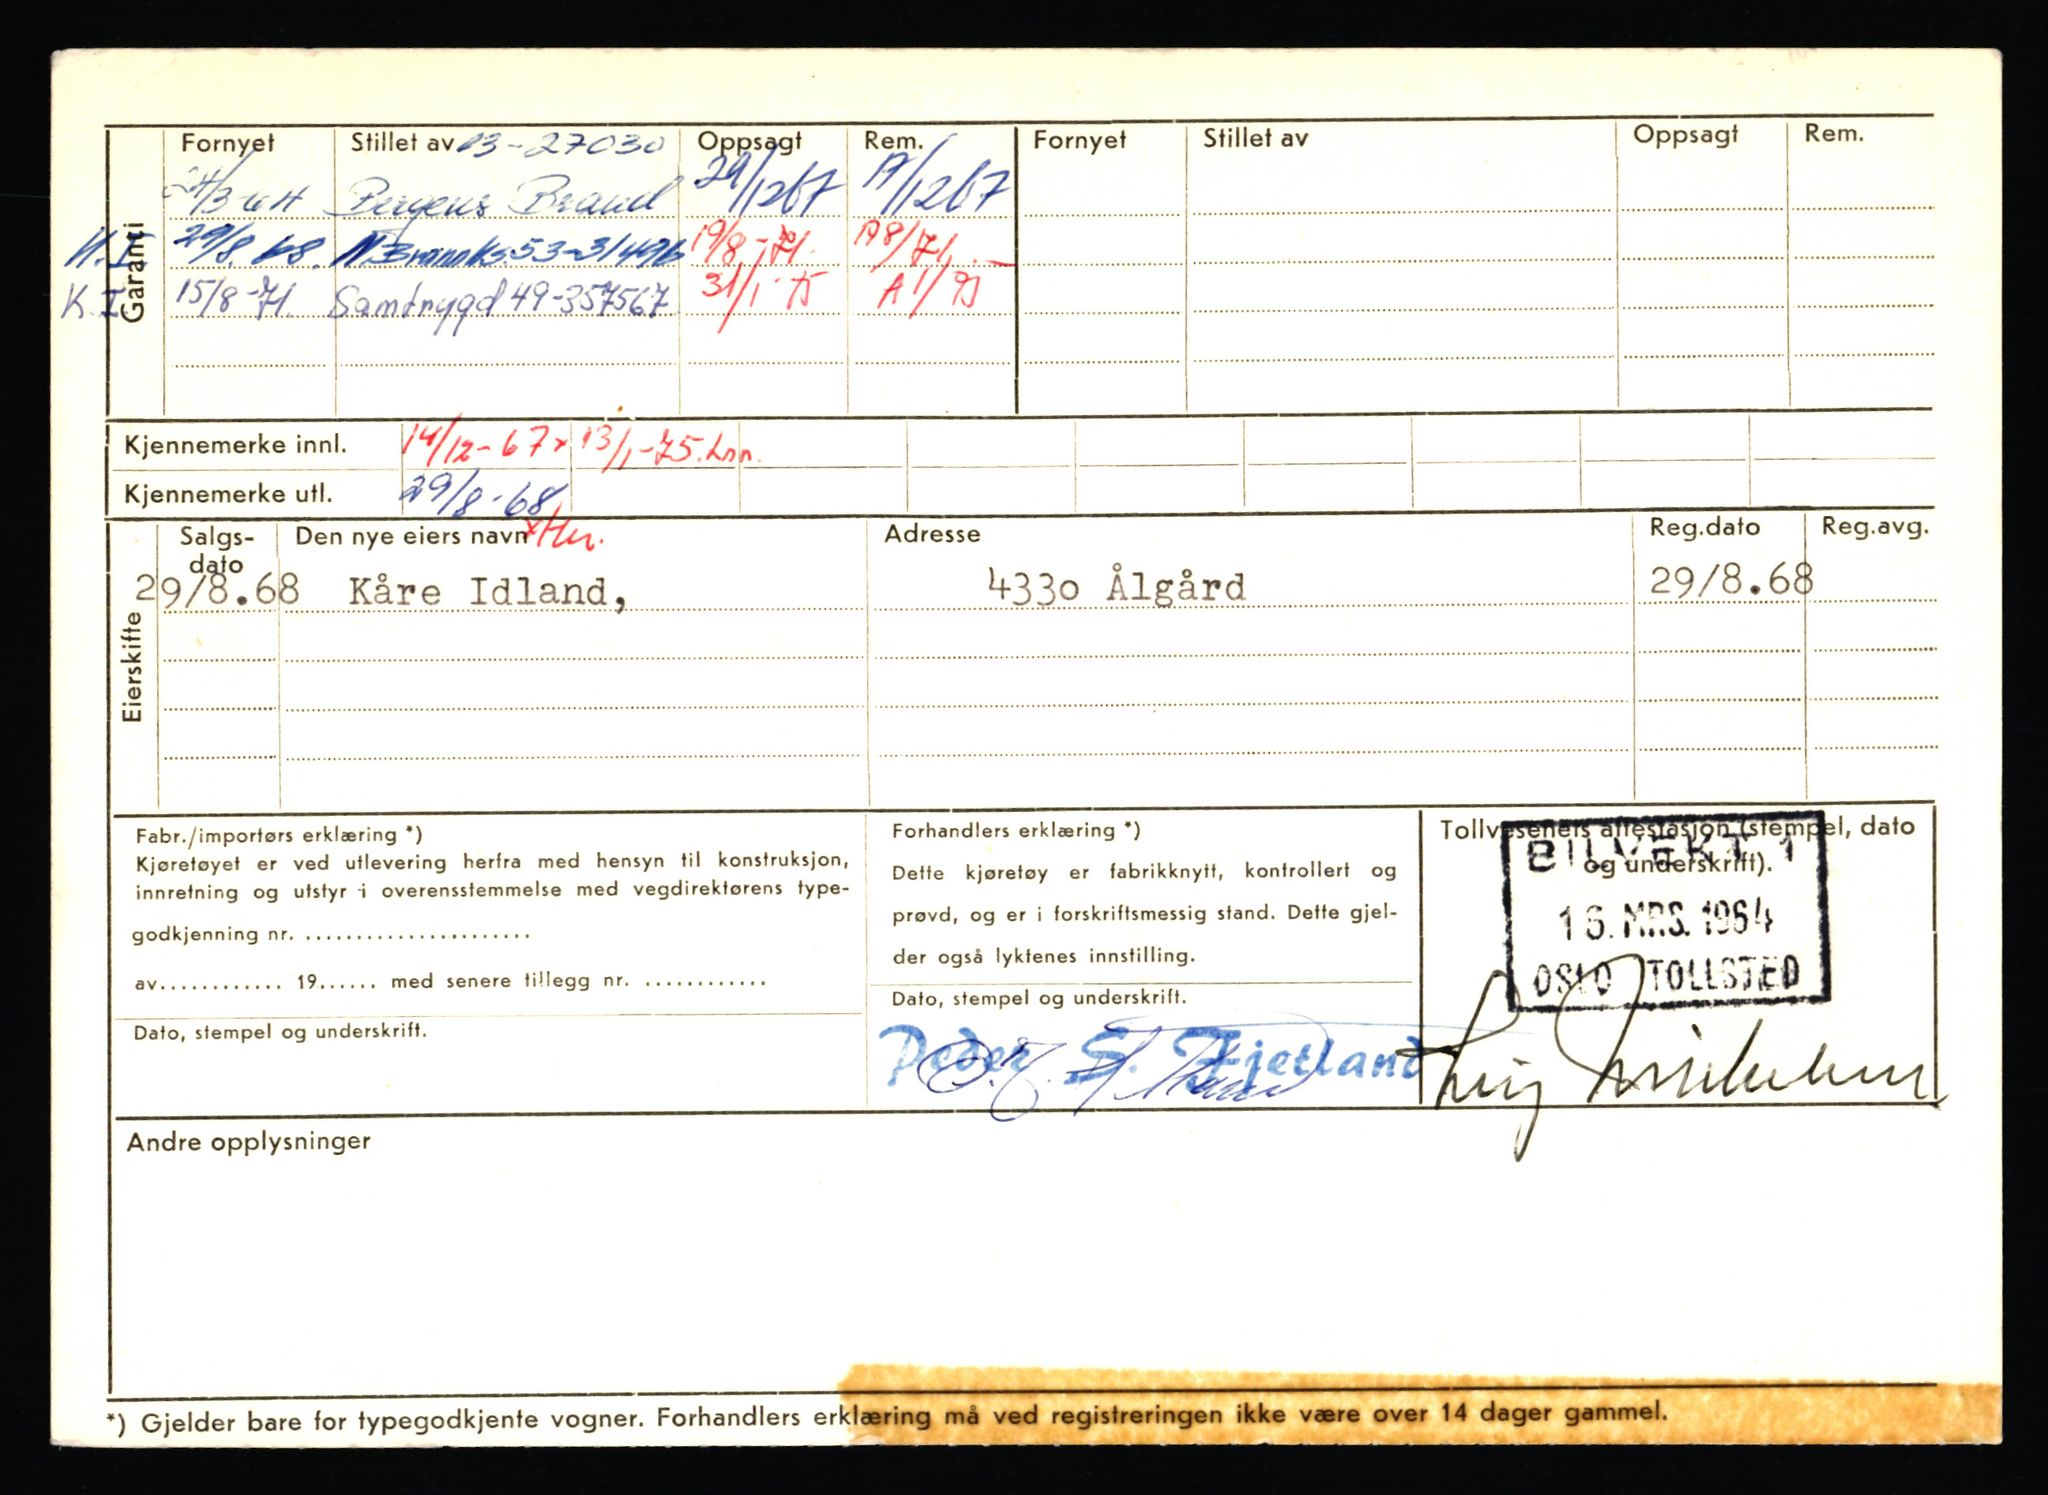 Fornyet Stillet av 13-27030 Oppsagt Rem. Fornyet Stillet av Oppsagt Rem.
24/3-64 Bergens Brand 29/1267 A/1267
Garanti
K.I. 29/8.68. N.Brannks.53-31496 19/8-71. A8/71.
K.I. 15/8-71. Samtrygd 49-357567. 31/1-75 A1/75
Kjennemerke innl. 14/12-67x 13/1-75.
Kjennemerke utl. 29/8-68
Eierskifte
Salgs-
dato Den nye eiers navn Adresse Reg.dato Reg.avg.
29/8.68 Kåre Idland, 4330 Ålgård 29/8.68
Fabr./importørs erklæring *)
Kjøretøyet er ved utlevering herfra med hensyn til konstruksjon,
innretning og utstyr i overensstemmelse med vegdirektørens type-
godkjenning nr. ......................
av............ 19...... med senere tillegg nr. ............
Dato, stempel og underskrift.
Forhandlers erklæring *)
Dette kjøretøy er fabrikknytt, kontrollert og
prøvd, og er i forskriftsmessig stand. Dette gjel-
der også lyktenes innstilling.
Dato, stempel og underskrift.
Peder S. Fjetland
Tollvesenets attestasjon (stempel, dato
og underskrift).
BILVEKT 1
16. MRS. 1964
OSLO TOLLSTED
Andre opplysninger
*) Gjelder bare for typegodkjente vogner. Forhandlers erklæring må ved registreringen ikke være over 14 dager gammel.